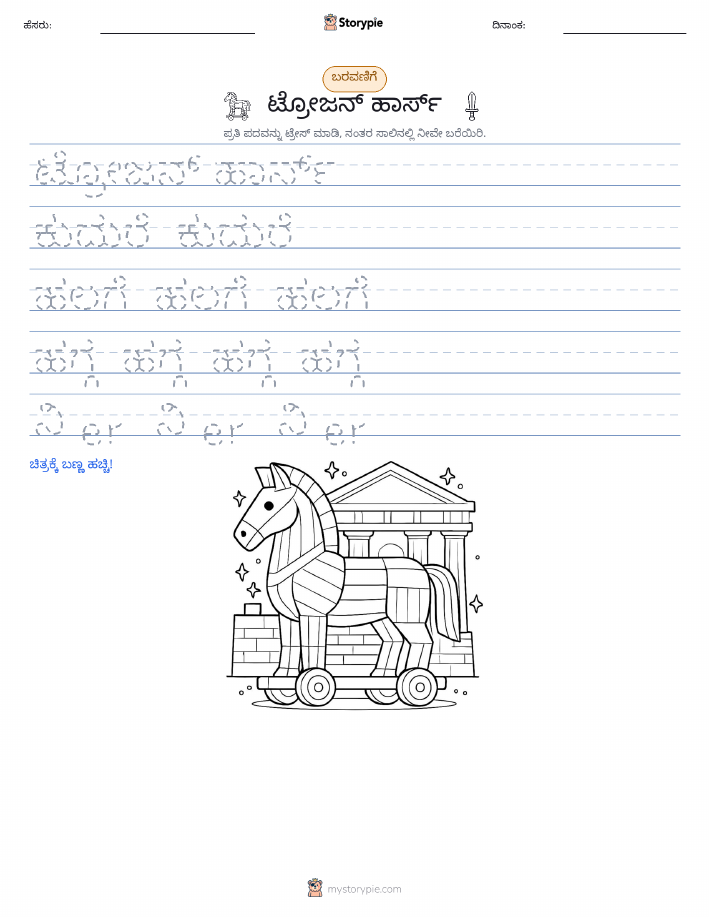 ಹೆಸರು:
Storypie
ದಿನಾಂಕ:
ಬರವಣಿಗೆ
ಟ್ರೋಜನ್ ಹಾರ್ಸ್
ಪ್ರತಿ ಪದವನ್ನು ಟ್ರೇಸ್ ಮಾಡಿ, ನಂತರ ಸಾಲಿನಲ್ಲಿ ನೀವೇ ಬರೆಯಿರಿ.
ಟ್ರೋಜನ್ ಹಾರ್ಸ್
ಕುದುರೆ ಕುದುರೆ
ಹಲಗೆ ಹಲಗೆ ಹಲಗೆ
ಹಗ್ಗ ಹಗ್ಗ ಹಗ್ಗ ಹಗ್ಗ
ಚಿತ್ರಕ್ಕೆ ಬಣ್ಣ ಹಚ್ಚಿ!
mystorypie.com